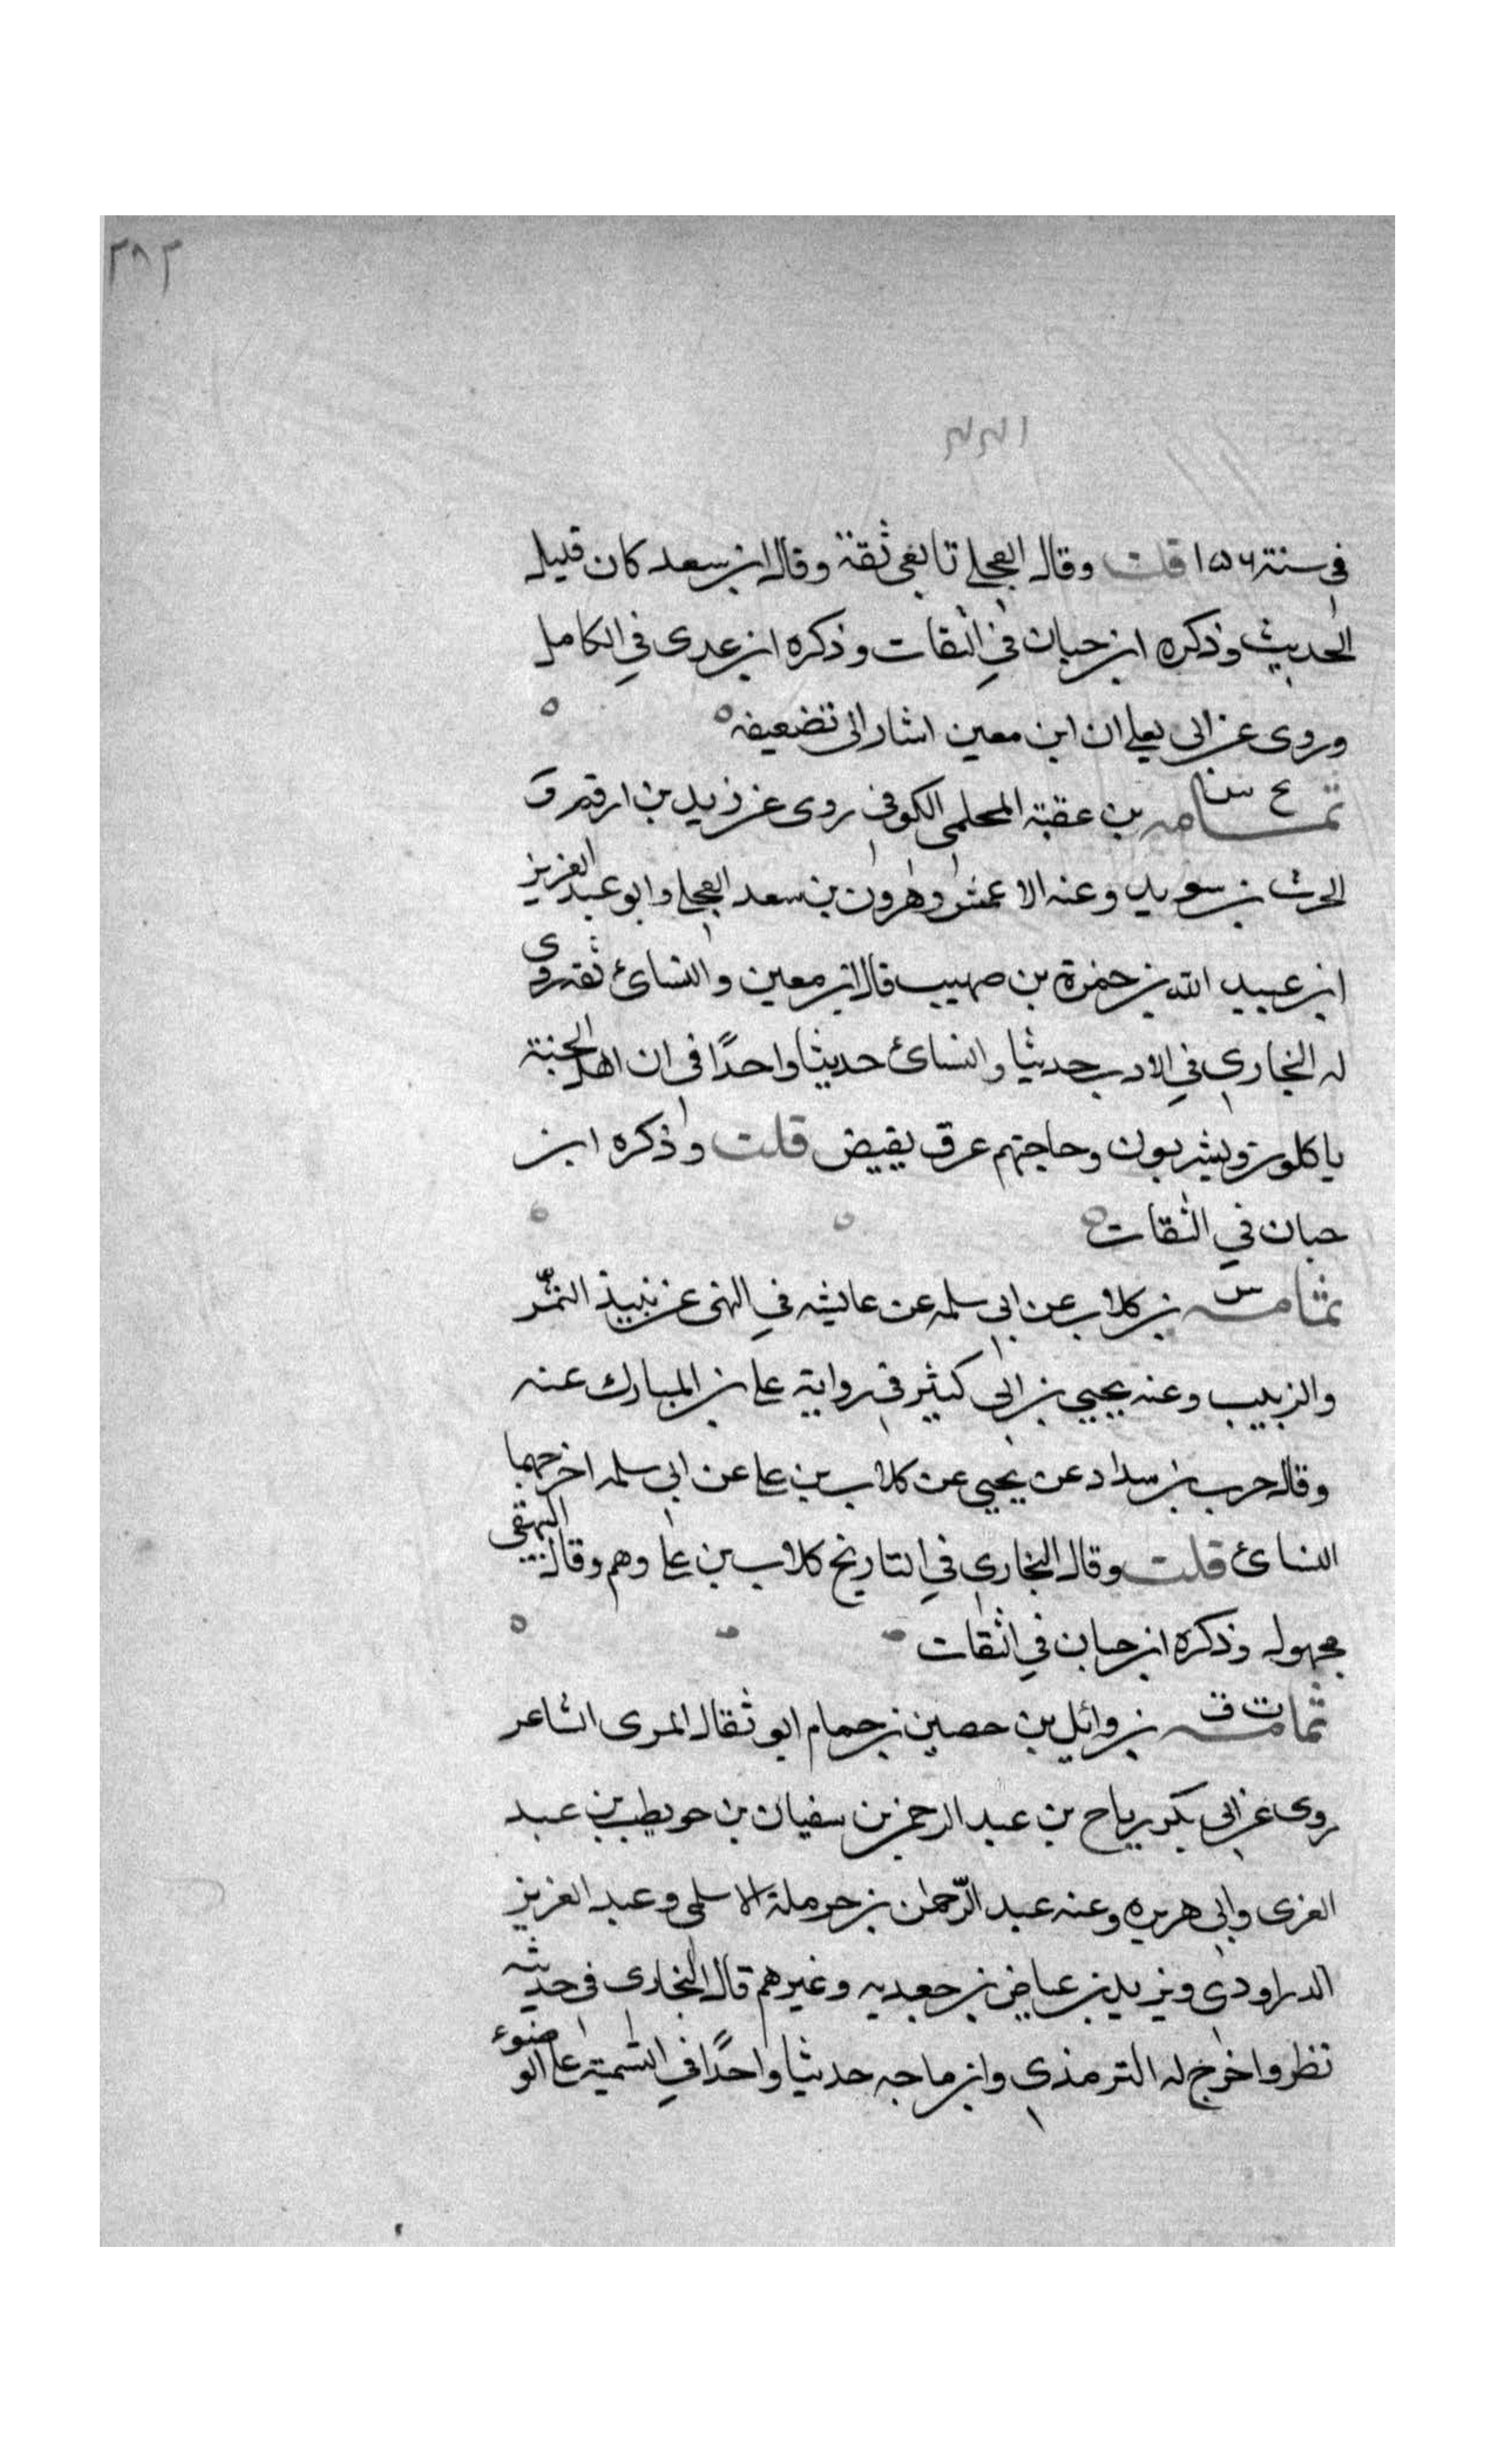 ٢٨٢
في سنة ١٥٦ قلت وقال العجلي تابعي ثقة وقال ابن سعد كان قليل
الحديث وذكره ابن حبان في الثقات وذكره ابن عدى في الكامل
وروى عن ابى يعلى ان ابن معين اشار الى تضعيفه
ع س
ثمامه بن عقبة المحلمى الكوفى روى عن زيد بن ارقم و
الحرث بن سويد وعنه الاعمش وهرون بن سعد العجلي وابو عبد العزيز
ابن عبيد الله بن حمزة بن صهيب قال ابن معين والنسائ ثقه روى
له البخاري في الادب حديثا والنسائ حديثا واحدًا في ان اهل الجنة
ياكلون ويشربون وحاجتهم عرق يفيض قلت وذكره ابن
حبان في الثقات
س
ثمامه بن كلاب عن ابي سلمه عن عايشه في النهى عن نبيذ التمر
والزبيب وعنه يحيي بن ابى كثير في رواية على بن المبارك عنه
وقال حرب بن سداد عن يحيى عن كلاب بن على عن ابي سلمه اخرجهما
النسائ قلت وقال البخاري في التاريخ كلاب بن على وهم وقال البيهقى
مجهول وذكره ابن حبان في الثقات
ت ق
ثمامه بن وائل بن حصين بن حمام ابو ثفال المرى الشاعر
روى عن ابى بكر رباح بن عبد الرحمن بن سفيان بن حويطب بن عبد
العزى وابي هريره وعنه عبد الرّحمن بن حرملة الاسلمى وعبد العزيز
الدراودي ويزيد بن عياض بن جعدبه وغيرهم قال البخارى في حديثه
نظر واخرج له الترمذي وابن ماجه حديثا واحدًا في التسمية على الوضوء